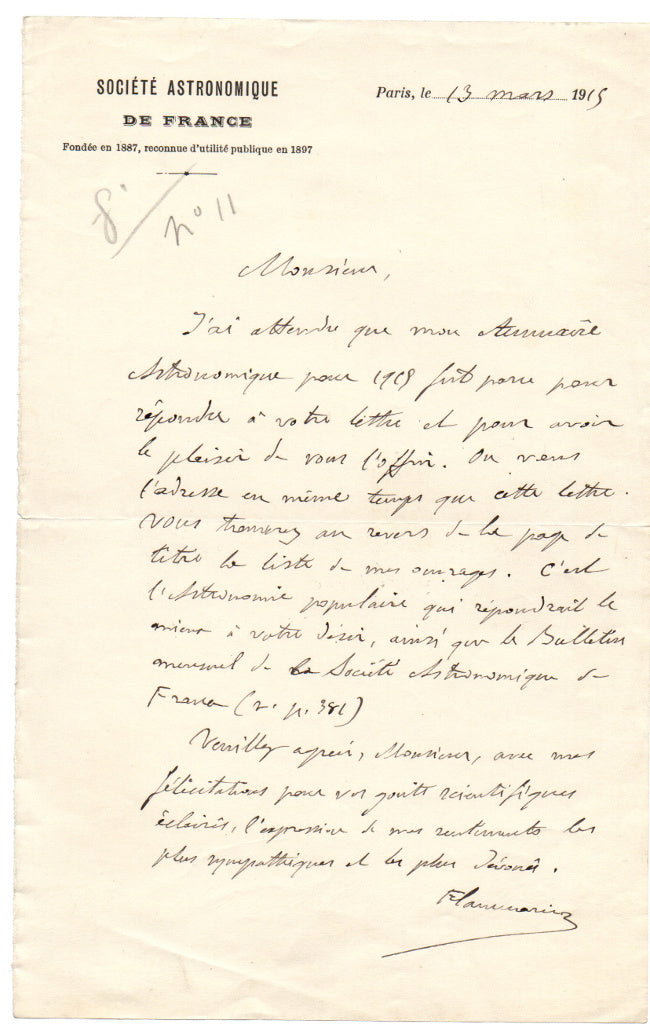 SOCIÉTÉ ASTRONOMIQUE
DE FRANCE
Fondée en 1887, reconnue d'utilité publique en 1897
Paris, le 13 mars 1915
8°
n° 11
Monsieur,
J'ai attendu que mon Annuaire
Astronomique pour 1915 fut paru pour
répondre à votre lettre et pour avoir
le plaisir de vous l'offrir. On vous
l'adresse en même temps que cette lettre.
Vous trouverez au revers de la page de
titre la liste de mes ouvrages. C'est
l'Astronomie populaire qui répondrait le
mieux à votre désir, ainsi que le Bulletin
mensuel de la Société Astronomique de
France (v. p. 381)
Veuillez agréer, Monsieur, avec mes
félicitations pour vos goûts scientifiques
éclairés, l'expression de mes sentiments les
plus sympathiques et les plus dévoués.
Flammarion